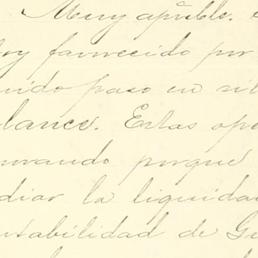 Muy apble.
oy favorecido por
uido paso en si
lance. Estas ope
urando porque
diar la liquidac
ntabilidad de Ge